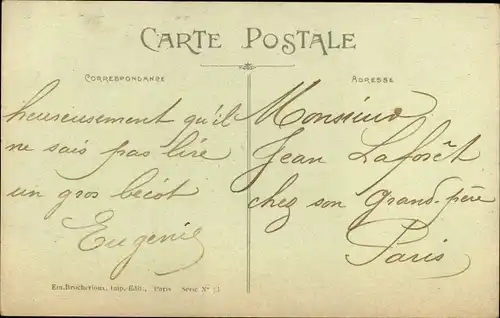 CARTE POSTALE
CORRESPONDANCE
ADRESSE
heureusement qu'il
ne sais pas lire
un gros bécot
Eugenie
Monsieur
Jean Laforêt
chez son Grand-père
Paris
Em. Brocherioux, Imp.-Edit., Paris Série N°